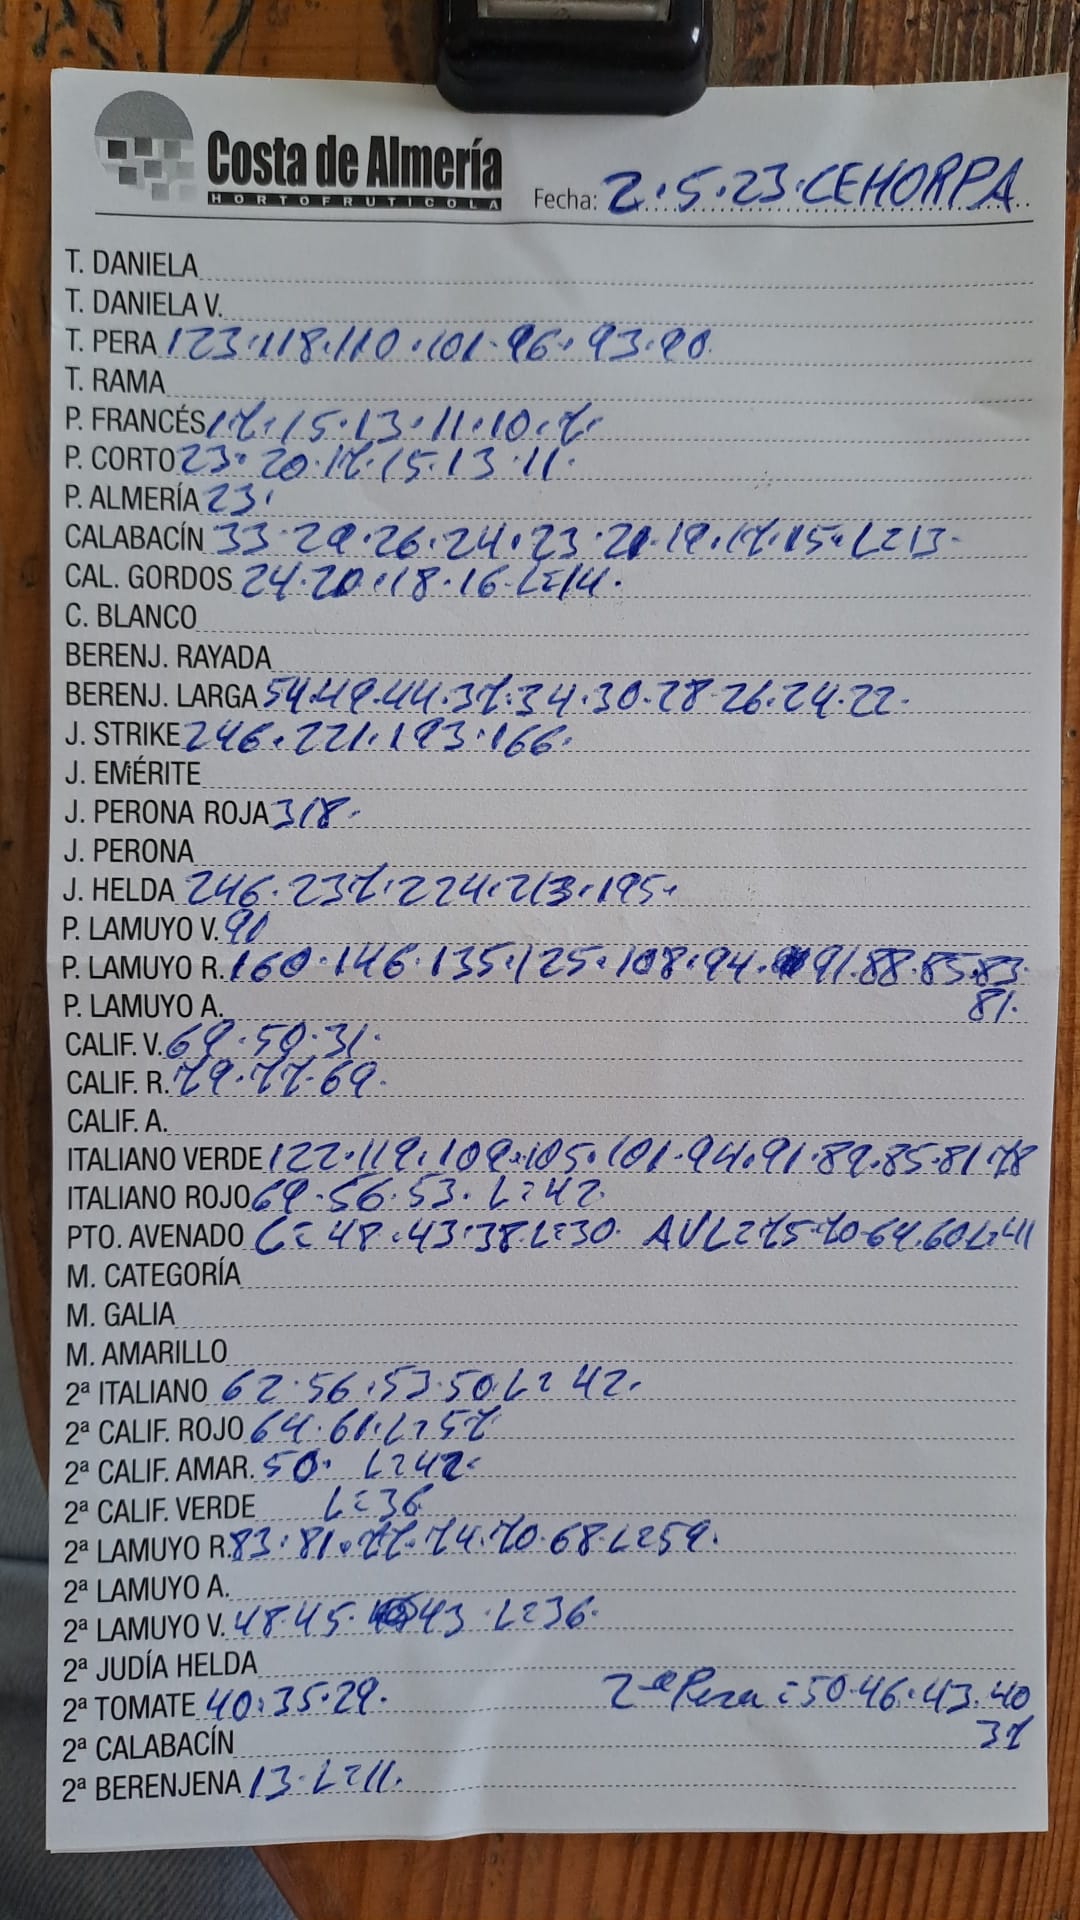 Costa de Almería
HORTOFRUTICOLA
Fecha: 2.5.23.CEHORPA
T. DANIELA
T. DANIELA V.
T. PERA 123.118.110.101.96.93.90.
T. RAMA
P. FRANCÉS 17.15.13.11.10.7.
P. CORTO 23.20.17.15.13.11.
P. ALMERÍA 23.
CALABACÍN 33.29.26.24.23.21.19.17.15.L=13.
CAL. GORDOS 24.20.18.16.L=14.
C. BLANCO
BERENJ. RAYADA
BERENJ. LARGA 54.49.44.37.34.30.28.26.24.22.
J. STRIKE 246.221.193.166.
J. EMÉRITE
J. PERONA ROJA 318.
J. PERONA
J. HELDA 246.237.224.213.195.
P. LAMUYO V. 90
P. LAMUYO R. 160.146.135.125.108.94.91.88.85.83.
81.
P. LAMUYO A.
CALIF. V. 69.50.31.
CALIF. R. 79.77.69.
CALIF. A.
ITALIANO VERDE 122.119.109.105.101.94.91.89.85.81.78
ITALIANO ROJO 69.56.53. L=42
PTO. AVENADO C=48.43.38.L=30. AVL=75.70.64.60.L=41
M. CATEGORÍA
M. GALIA
M. AMARILLO
2ª ITALIANO 62.56.53.50.L=42.
2ª CALIF. ROJO 64.61.L=57
2ª CALIF. AMAR. 50. L=42.
2ª CALIF. VERDE L=36
2ª LAMUYO R. 83.81.77.74.70.68.L=59.
2ª LAMUYO A.
2ª LAMUYO V. 48.45.43.L=36.
2ª JUDÍA HELDA
2ª TOMATE 40.35.29. 2ª Pera=50.46.43.40
37
2ª CALABACÍN
2ª BERENJENA 13.L=11.